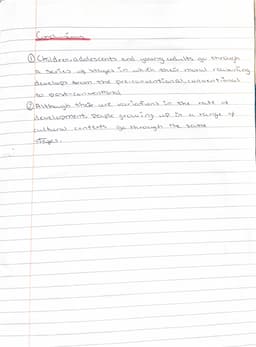 Conclusions
① Children, adolescents and young adults go through
a series of stages in which their moral reasoning
develops from the pre-conventional, conventional
to post-conventional
② Although there are variations in the rate of
development, people growing up in a range of
cultural contexts go through the same
stages.